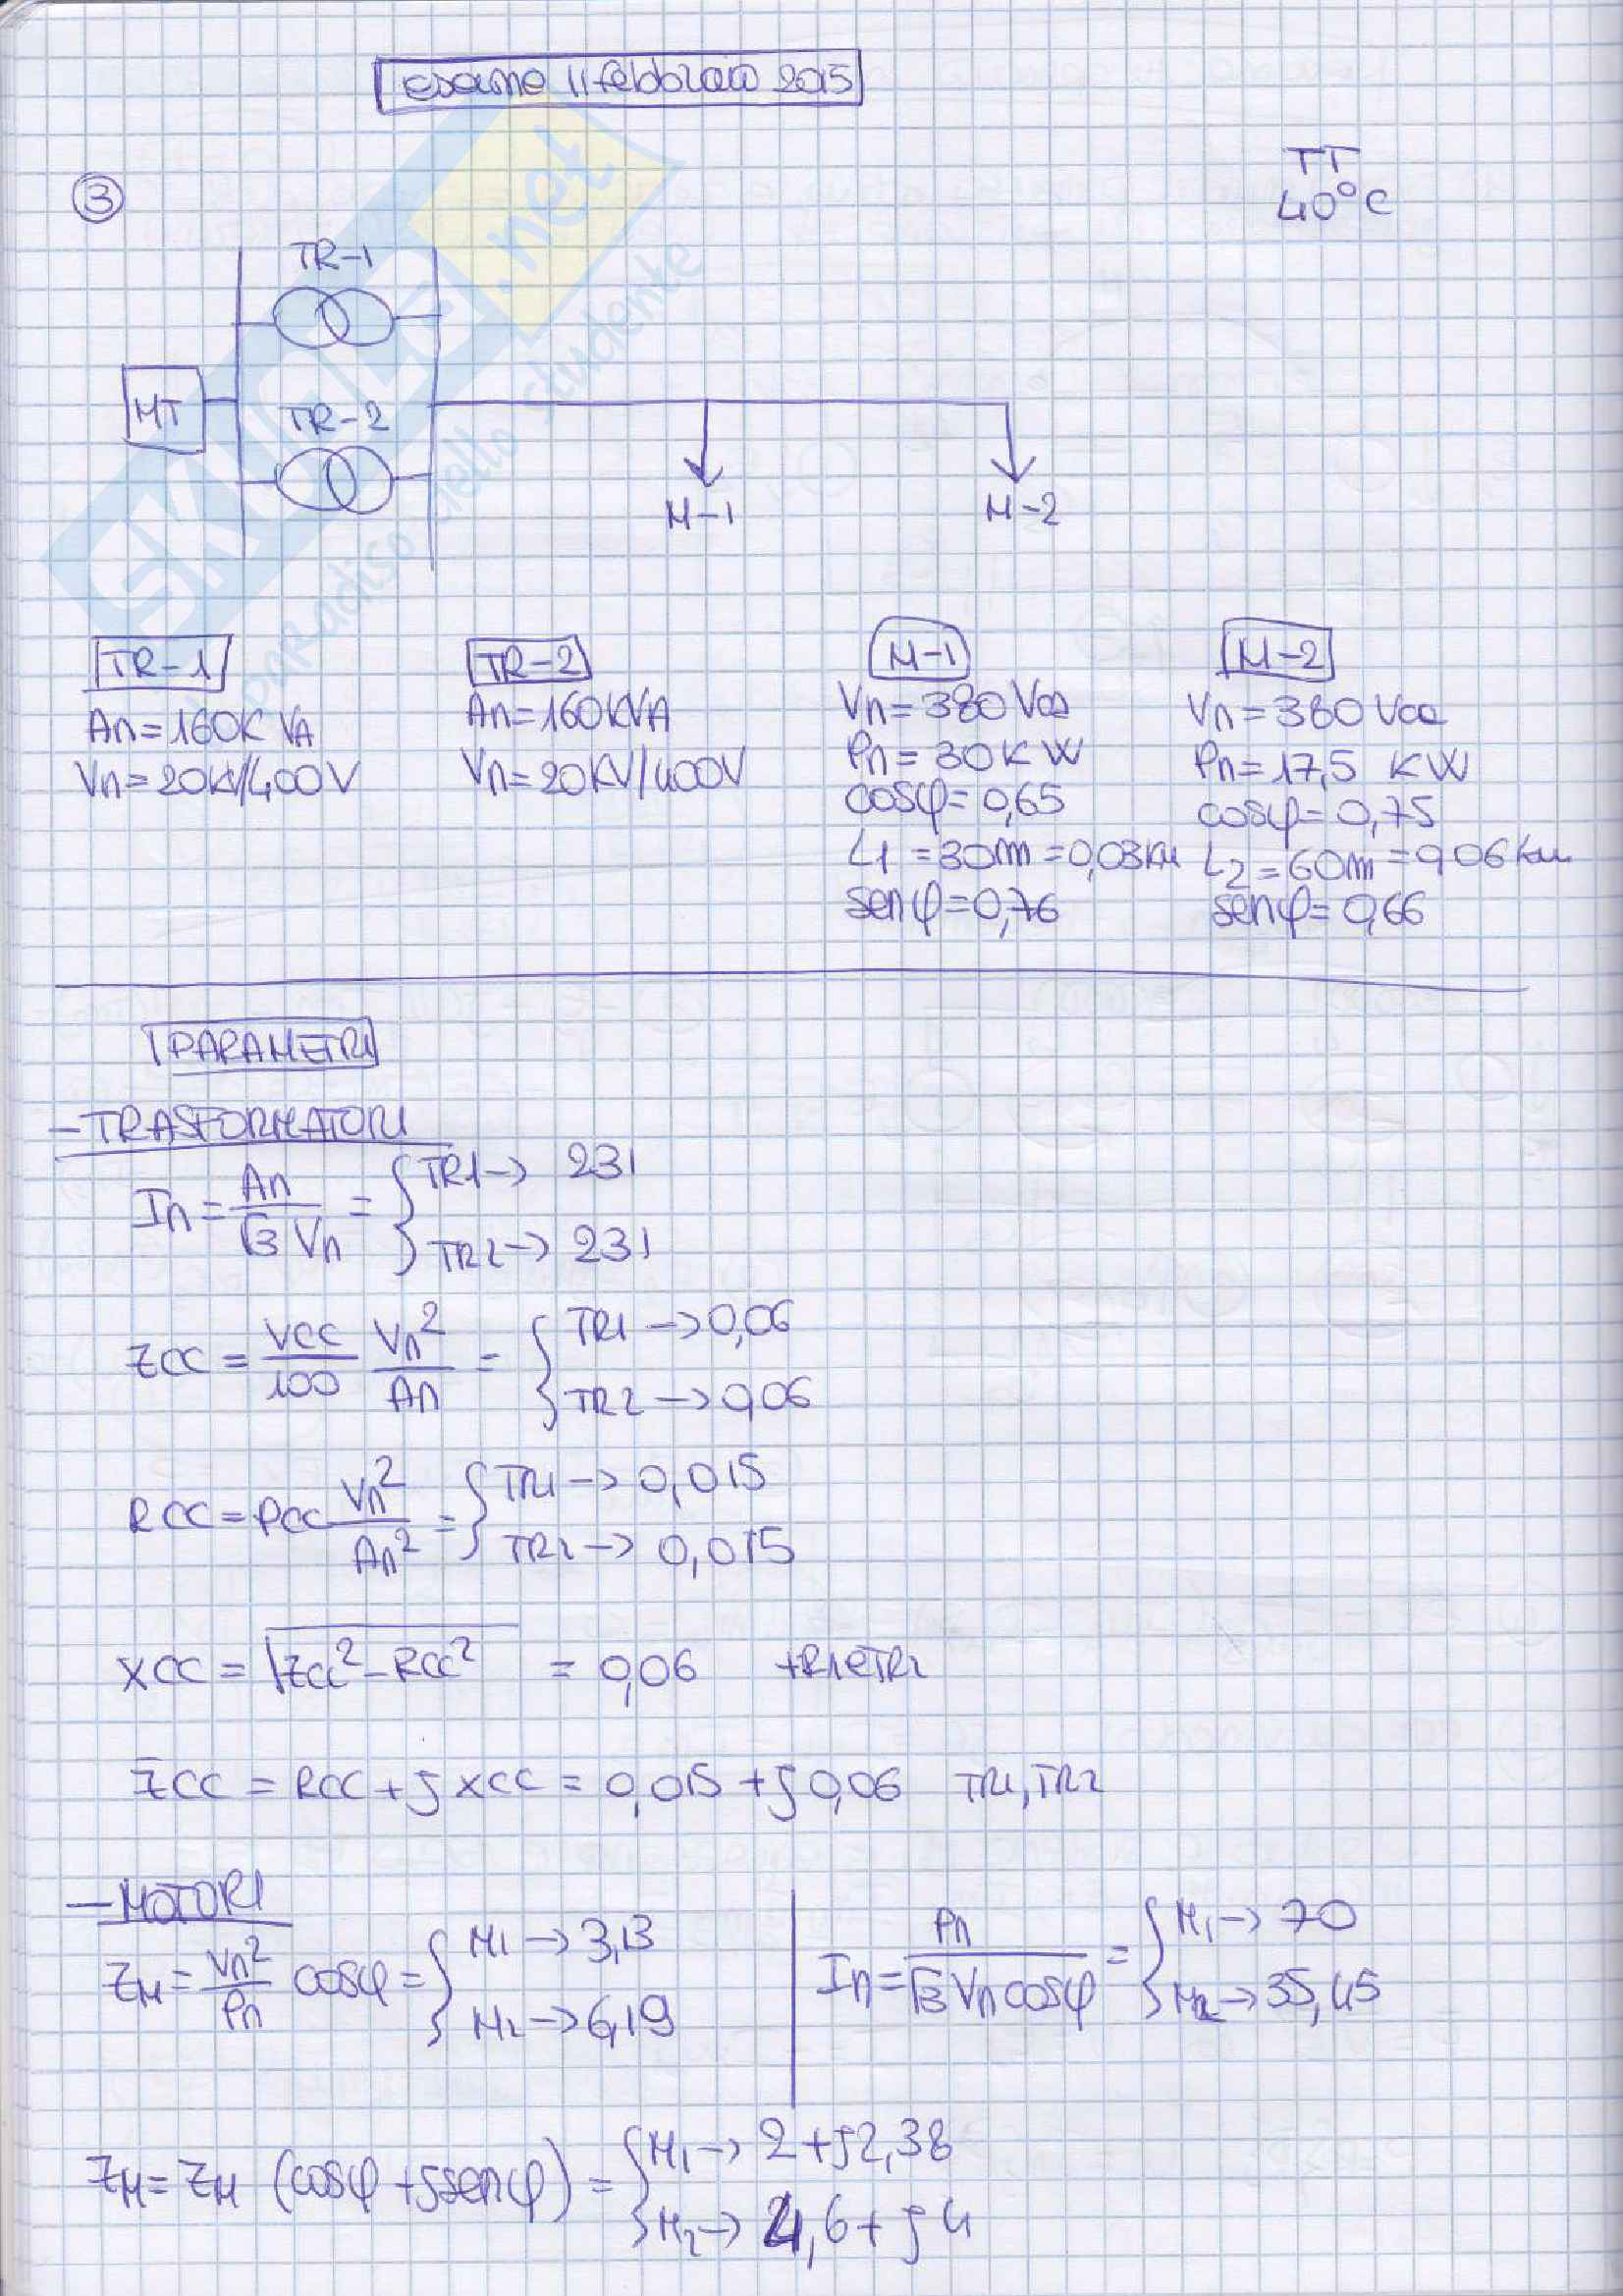 esame 11 febbraio 2015
TT
40°C
③
TR-1
MT
TR-2
M-1
M-2
SKUOLA.net
paradiso dello studente
TR-1
An=160KVA
Vn=20KV/400V
TR-2
An=160KVA
Vn=20KV/400V
M-1
Vn=380Vca
Pn=30KW
cosφ=0,65
L1=30m=0,03km
senφ=0,76
M-2
Vn=380Vca
Pn=17,5 KW
cosφ=0,75
L2=60m=0,06km
senφ=0,66
PARAMETRI
-TRASFORMATORI
In = An/√3 Vn = { TR1→ 231
TR2→ 231
ZCC = VCC/100 Vn²/An = { TR1→0,06
TR2→0,06
RCC = PCC Vn²/An² = { TR1→ 0,015
TR2→ 0,015
XCC = √ZCC²-RCC² = 0,06 TR1 e TR2
ZCC = RCC+jXCC = 0,015+j0,06 TR1,TR2
-MOTORI
ZM = Vn²/Pn cosφ = { M1→3,13
M2→6,19
In = Pn/√3 Vn cosφ = { M1→70
M2→35,45
ZM = ZM (cosφ+jsenφ) = { M1→ 2+j2,38
M2→ 4,6+j4